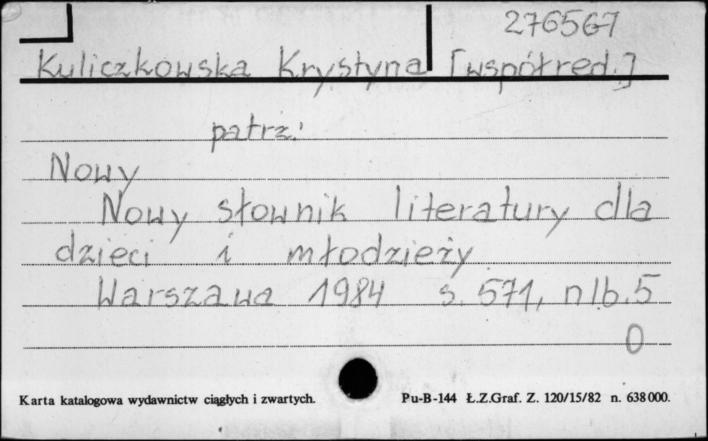 276567
Kuliczkowska Krystyna [współred.]
patrz:
Nowy
Nowy słownik literatury dla
dzieci i młodzieży
Warszawa 1984 s. 571, nlb. 5
0
Karta katalogowa wydawnictw ciągłych i zwartych. Pu-B-144 Ł.Z.Graf. Z. 120/15/82 n. 638000.